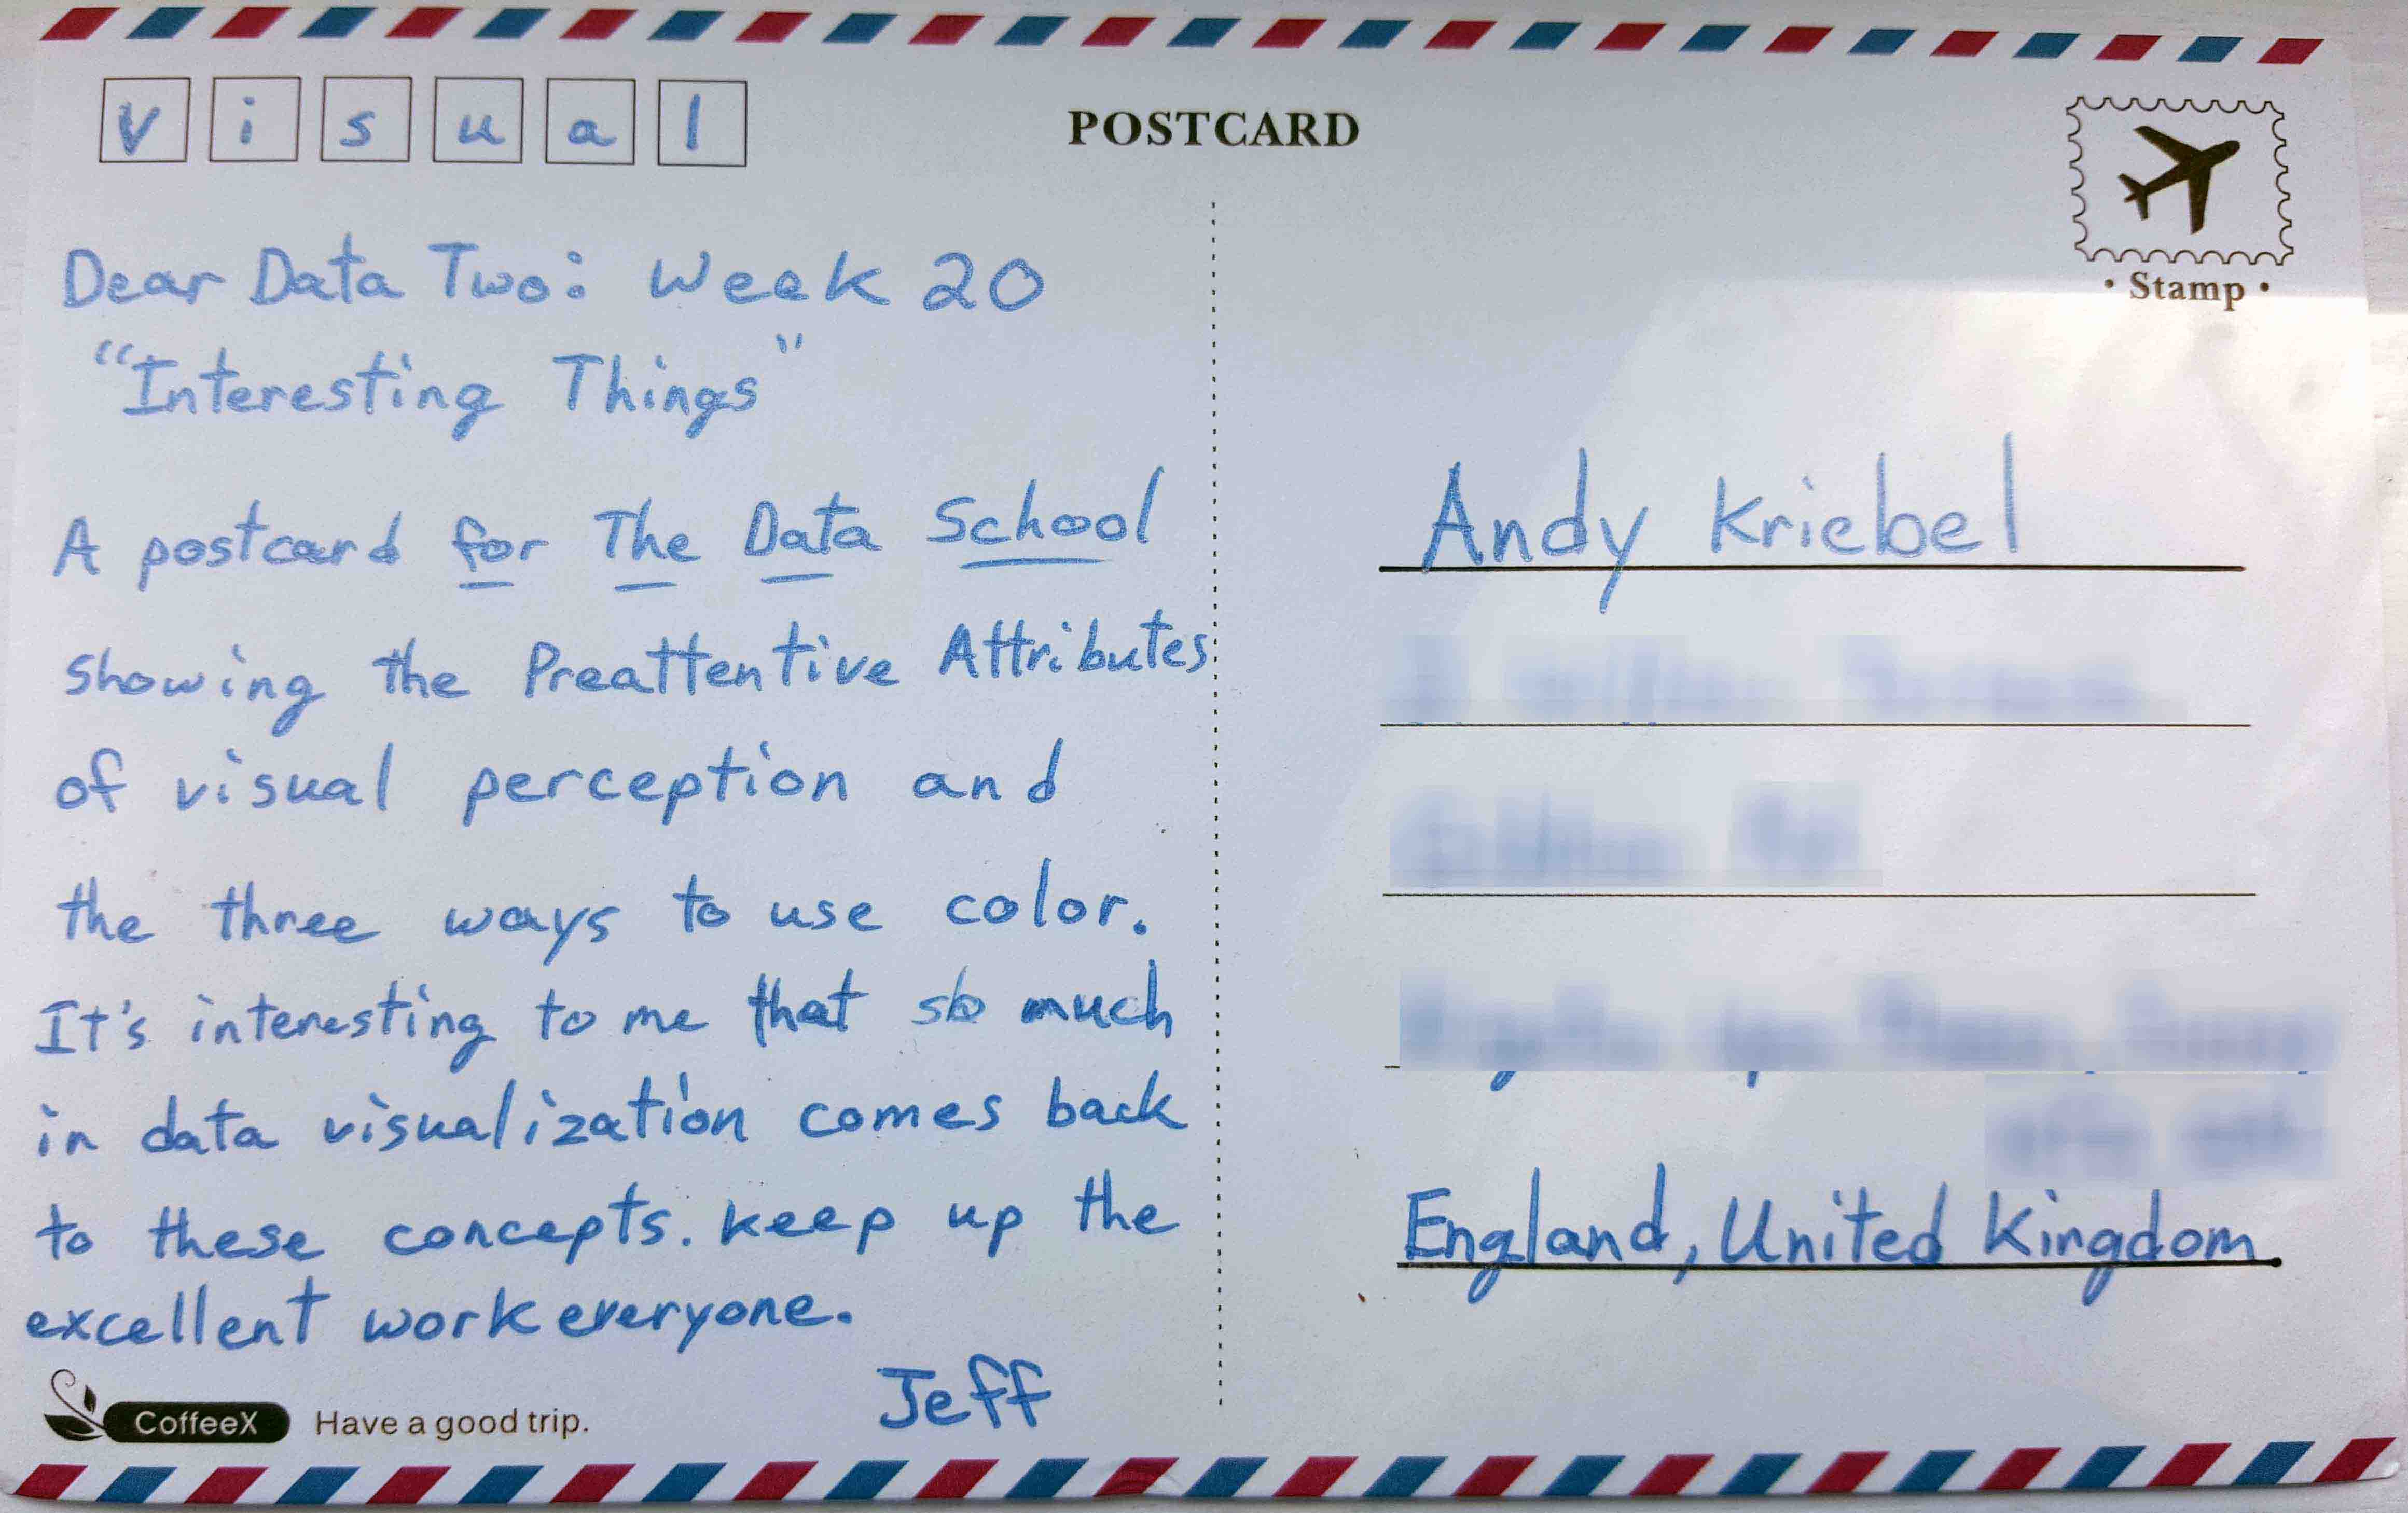 visual
POSTCARD
• Stamp •
Dear Data Two: Week 20
"Interesting Things"
A postcard for The Data School
showing the Preattentive Attributes
of visual perception and
the three ways to use color.
It's interesting to me that so much
in data visualization comes back
to these concepts. keep up the
excellent work everyone.
Jeff
CoffeeX Have a good trip.
Andy Kriebel
England, United Kingdom